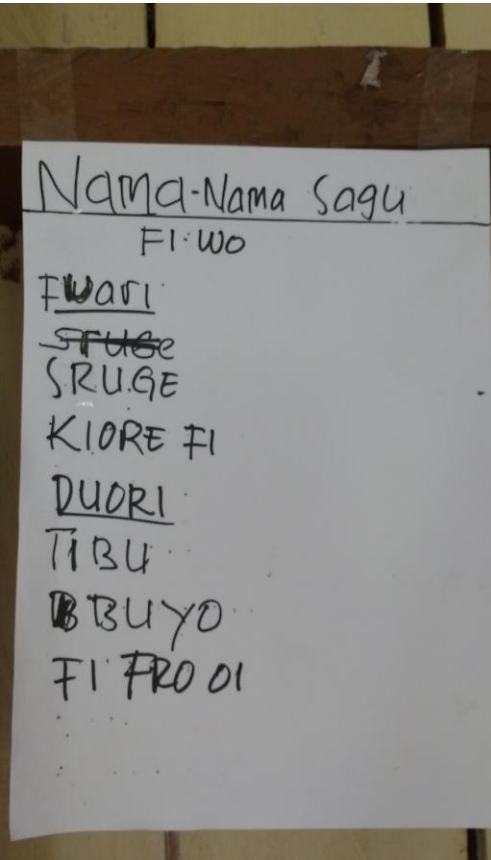 Nama-Nama Sagu
FI.WO
Fwari
SRUGE
SRUGE
KIORE FI
DUORI
TIBU
BUYO
FI FRO OI